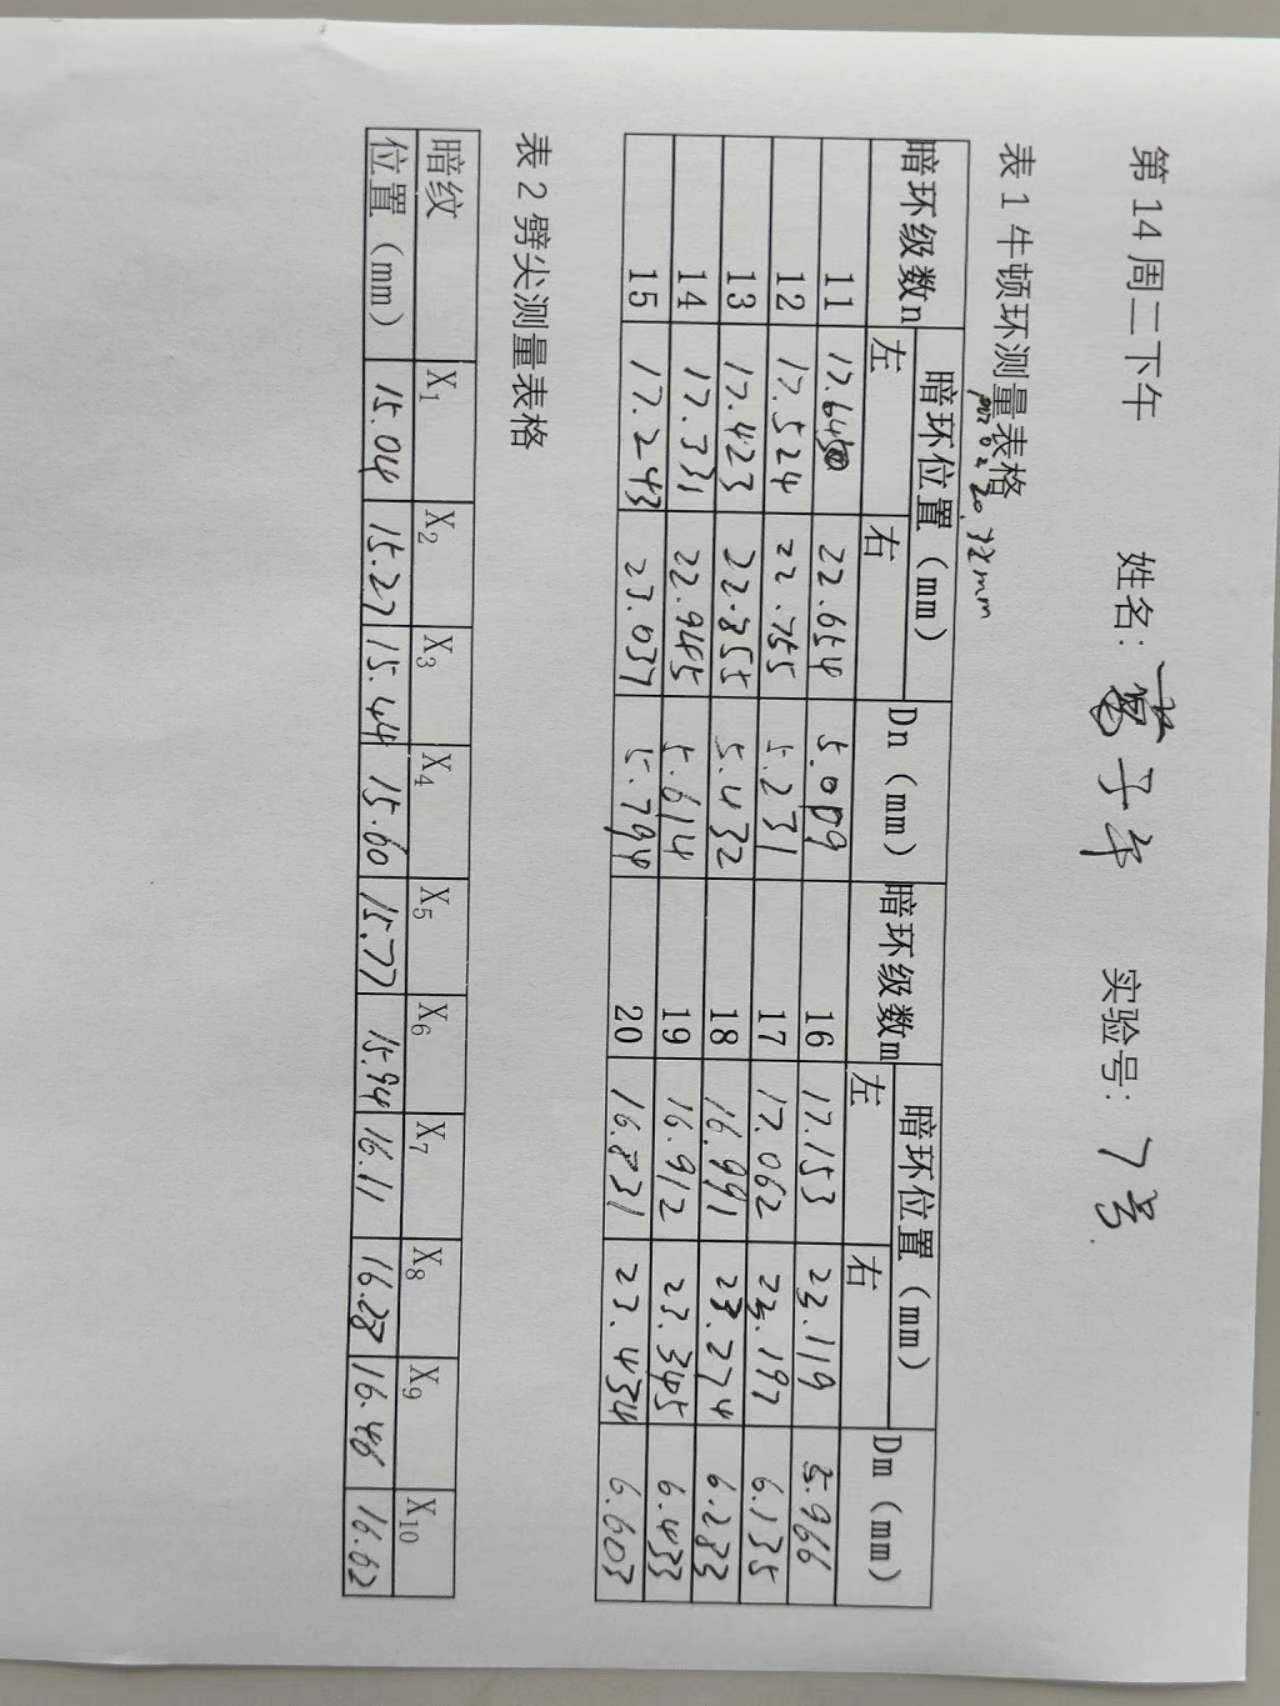 第 14 周二下午 姓名: 子平 实验号: 7号.
表 1 牛顿环测量表格
20.72mm
暗环级数n 暗环位置（mm） Dn（mm） 暗环级数m 暗环位置（mm） Dm（mm）
左 右 左 右
11 17.645 22.654 5.009 16 17.153 23.119 5.966
12 17.524 22.755 5.231 17 17.062 23.197 6.135
13 17.423 22.855 5.432 18 16.991 23.274 6.283
14 17.331 22.945 5.614 19 16.912 23.345 6.433
15 17.243 23.037 5.794 20 16.831 23.434 6.603
表 2 劈尖测量表格
暗纹 X1 X2 X3 X4 X5 X6 X7 X8 X9 X10
位置（mm） 15.04 15.27 15.44 15.60 15.77 15.94 16.11 16.28 16.46 16.62